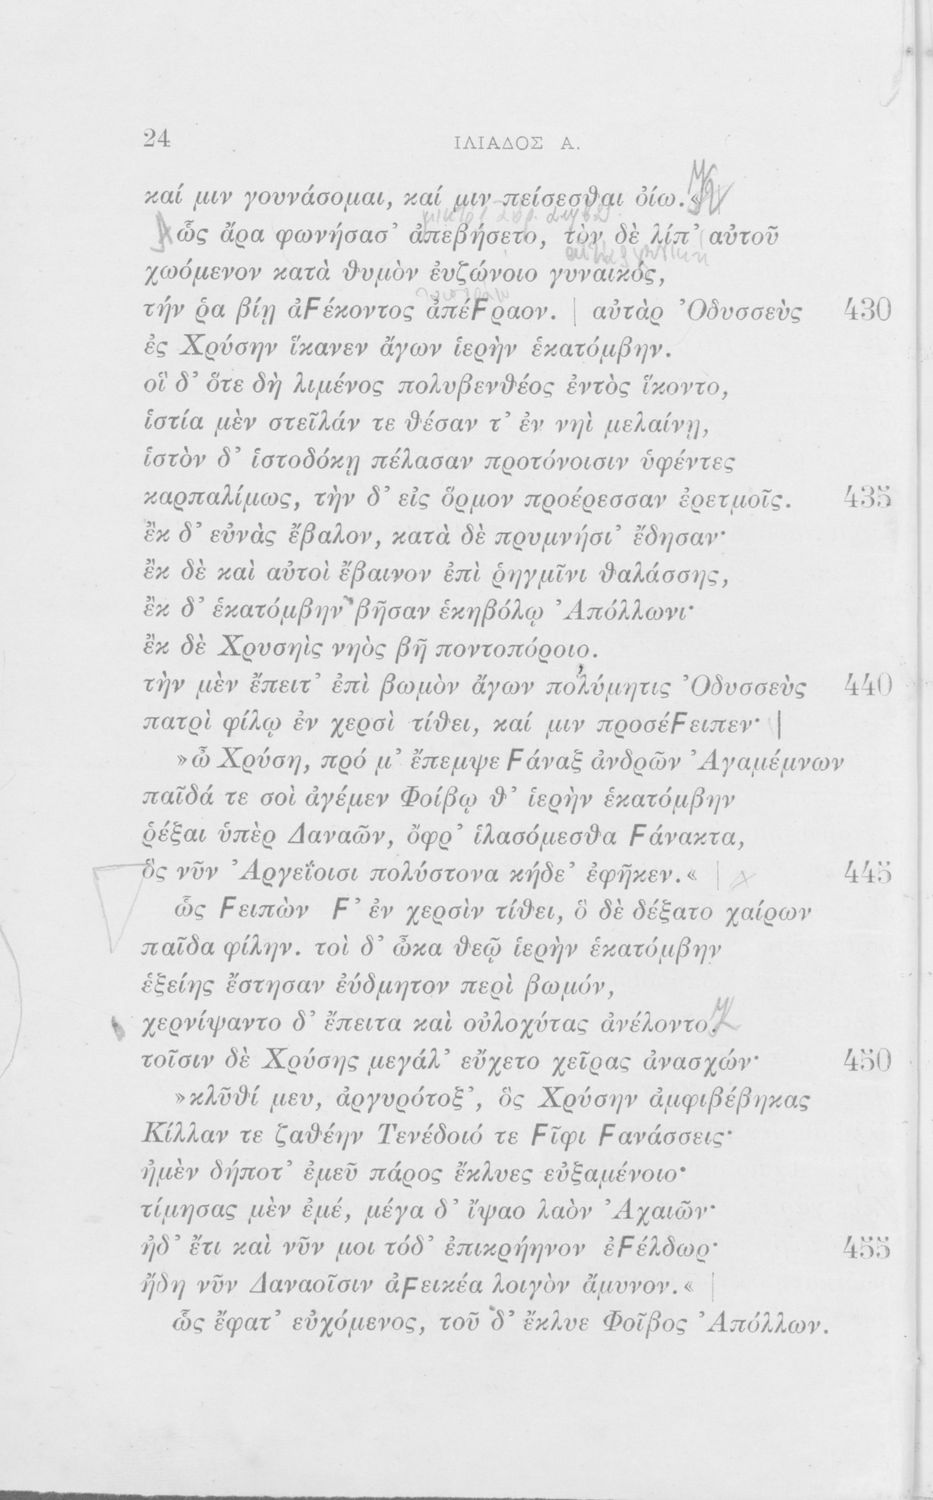 24
ΙΛΙΑΔΟΣ Α.
καί μιν γουνάσομαι, καί μιν πείσεσθαι ὀίω.«
ὣς ἄρα φωνήσασ’ ἀπεβήσετο, τὸν δὲ λίπ’ αὐτοῦ
χωόμενον κατὰ θυμὸν ἐυζώνοιο γυναικός,
τήν ῥα βίῃ ἀϜέκοντος ἀπέϜραον. | αὐτὰρ Ὀδυσσεὺς 430
ἐς Χρύσην ἵκανεν ἄγων ἱερὴν ἑκατόμβην.
οἳ δ’ ὅτε δὴ λιμένος πολυβενθέος ἐντὸς ἵκοντο,
ἱστία μὲν στεῖλάν τε θέσαν τ’ ἐν νηὶ μελαίνῃ,
ἱστὸν δ’ ἱστοδόκῃ πέλασαν προτόνοισιν ὑφέντες
καρπαλίμως, τὴν δ’ εἰς ὅρμον προέρεσσαν ἐρετμοῖς. 435
ἒκ δ’ εὐνὰς ἔβαλον, κατὰ δὲ πρυμνήσι’ ἔδησαν·
ἒκ δὲ καὶ αὐτοὶ ἔβαινον ἐπὶ ῥηγμῖνι θαλάσσης,
ἒκ δ’ ἑκατόμβην βῆσαν ἑκηβόλῳ Ἀπόλλωνι·
ἒκ δὲ Χρυσηὶς νηὸς βῆ ποντοπόροιο.
τὴν μὲν ἔπειτ’ ἐπὶ βωμὸν ἄγων πολύμητις Ὀδυσσεὺς 440
πατρὶ φίλῳ ἐν χερσὶ τίθει, καί μιν προσέϜειπεν· |
»ὦ Χρύση, πρό μ’ ἔπεμψε Ϝάναξ ἀνδρῶν Ἀγαμέμνων
παῖδά τε σοὶ ἀγέμεν Φοίβῳ θ’ ἱερὴν ἑκατόμβην
ῥέξαι ὑπὲρ Δαναῶν, ὄφρ’ ἱλασόμεσθα Ϝάνακτα,
ὃς νῦν Ἀργεΐοισι πολύστονα κήδε’ ἐφῆκεν.« | 445
ὣς Ϝειπὼν Ϝ’ ἐν χερσὶν τίθει, ὃ δὲ δέξατο χαίρων
παῖδα φίλην. τοὶ δ’ ὦκα θεῷ ἱερὴν ἑκατόμβην
ἑξείης ἔστησαν ἐύδμητον περὶ βωμόν,
χερνίψαντο δ’ ἔπειτα καὶ οὐλοχύτας ἀνέλοντο.
τοῖσιν δὲ Χρύσης μεγάλ’ εὔχετο χεῖρας ἀνασχών· 450
»κλῦθί μευ, ἀργυρότοξ’, ὃς Χρύσην ἀμφιβέβηκας
Κίλλαν τε ζαθέην Τενέδοιό τε Ϝῖφι Ϝανάσσεις·
ἠμὲν δήποτ’ ἐμεῦ πάρος ἔκλυες εὐξαμένοιο·
τίμησας μὲν ἐμέ, μέγα δ’ ἴψαο λαὸν Ἀχαιῶν·
ἠδ’ ἔτι καὶ νῦν μοι τόδ’ ἐπικρήηνον ἐϜέλδωρ· 455
ἤδη νῦν Δαναοῖσιν ἀϜεικέα λοιγὸν ἄμυνον.« |
ὣς ἔφατ’ εὐχόμενος, τοῦ δ’ ἔκλυε Φοῖβος Ἀπόλλων.